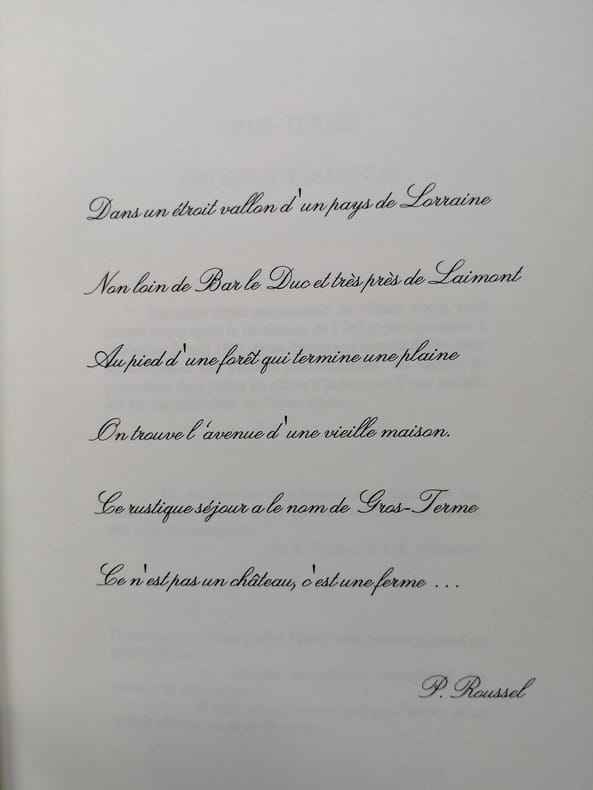 Dans un étroit vallon d'un pays de Lorraine
Non loin de Bar le Duc et très près de Laimont
Au pied d'une forêt qui termine une plaine
On trouve l'avenue d'une vieille maison.
Ce rustique séjour a le nom de Gros-Terme
Ce n'est pas un château, c'est une ferme ...
P. Roussel